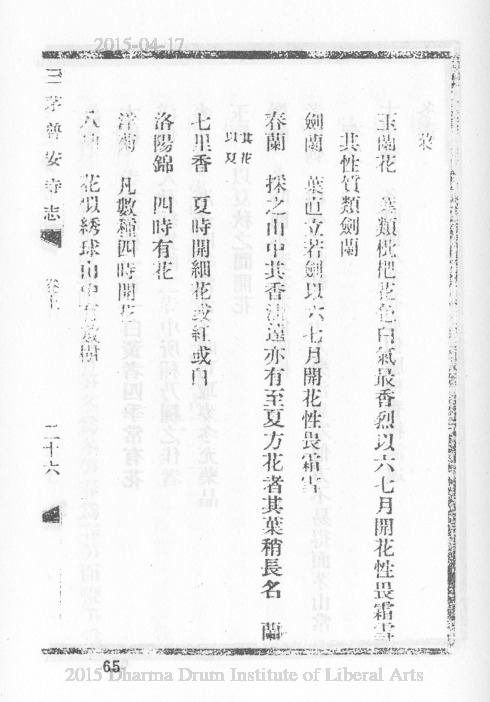 2015-04-17
葉
玉蘭花 葉類枇杷花色白氣最香烈以六七月開花性畏霜雪
其性質類劍蘭
劍蘭 葉直立若劍以六七月開花性畏霜雪
春蘭 採之山中其香清遠亦有至夏方花者其葉稍長名 蘭
其花
以夏
七里香 夏時開細花或紅或白
洛陽錦 四時有花
洋菊 凡數種四時開花
八 花似綉球山中有數樹
三茅普安寺志 卷上 二十六
65
2015 Dharma Drum Institute of Liberal Arts